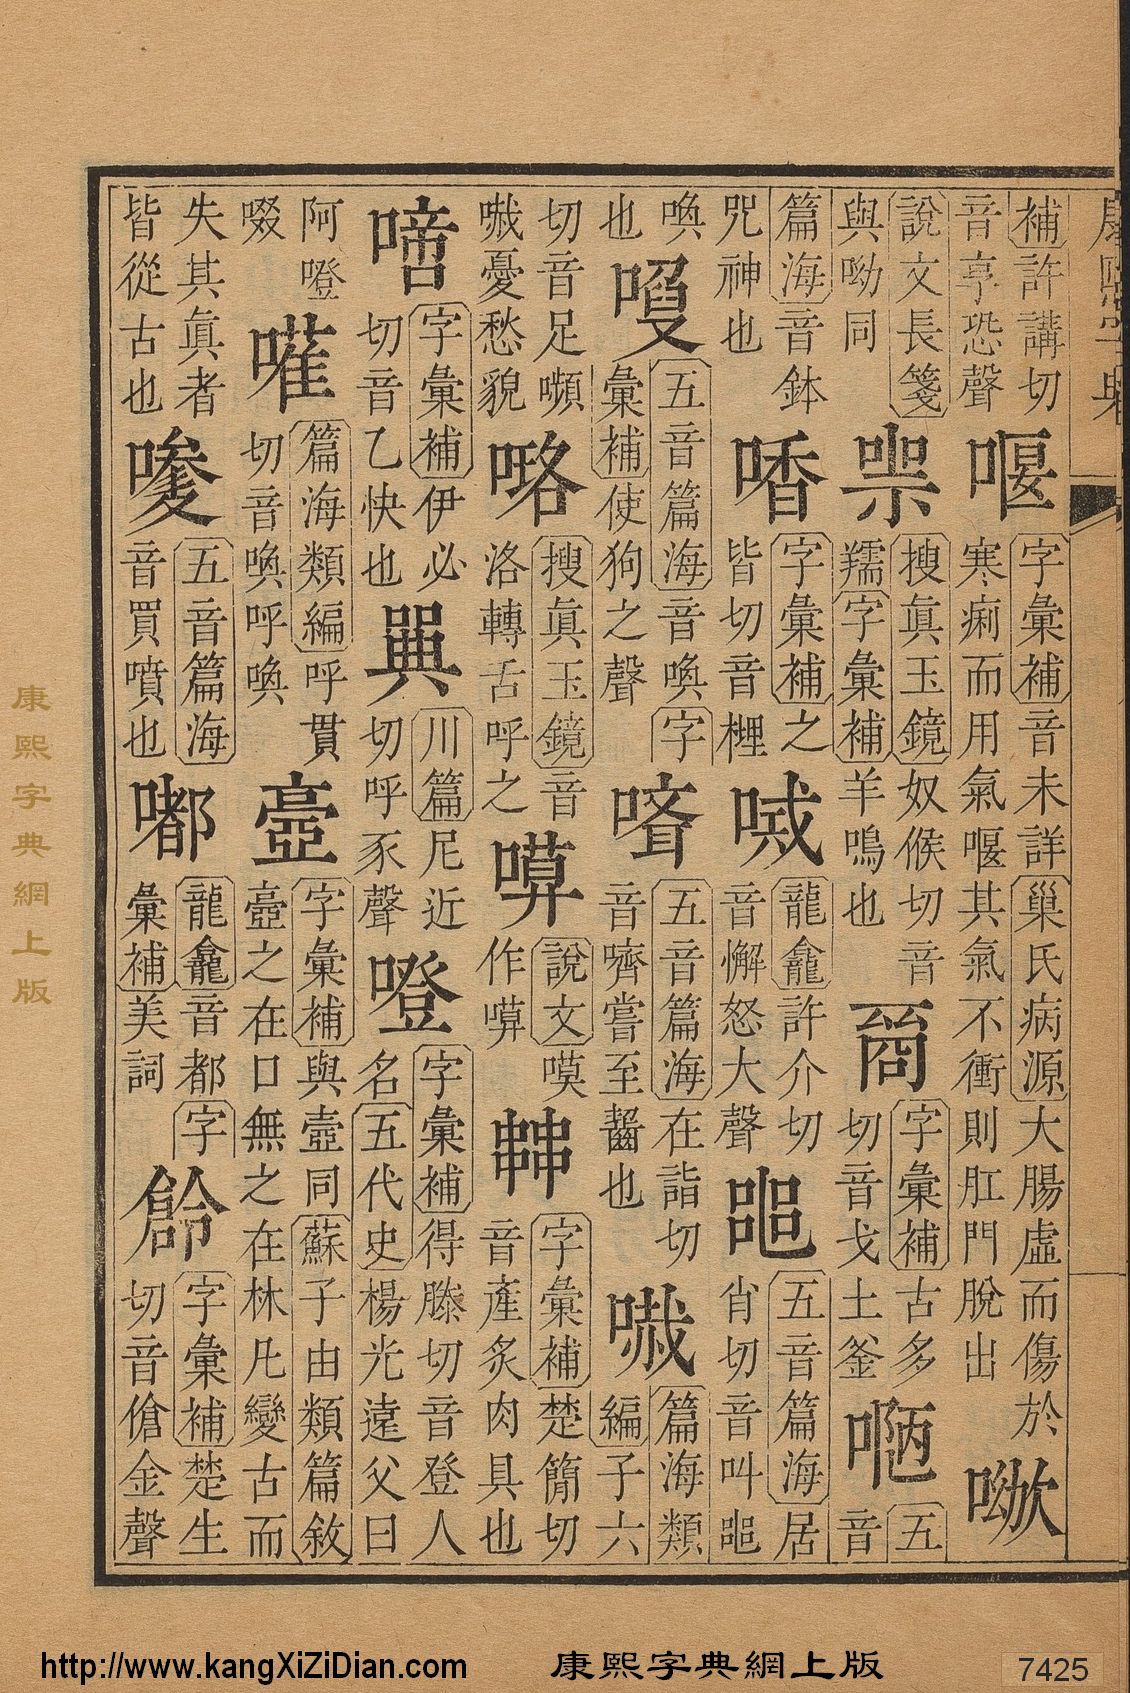 補許講切
音亨恐聲
字彙補音未詳巢氏病源大腸虛而傷於
寒痢而用氣其氣不衝則肛門脫出
說文長箋
與呦同
搜眞玉鏡奴候切音
羺字彙補羊鳴也
字彙補古多
切音戈土釜
五
音
篇海音鉢
咒神也
字彙補之
皆切音
龍龕許介切
音懈怒大聲
五音篇海居
肖切音叫
喚
也
五音篇海音喚字
彙補使狗之聲
五音篇海在詣切
音嚌嘗至也
篇海類
編子六
切音足嚬
憂愁貌
搜眞玉鏡音
洛轉舌呼之
說文嗼
作
字彙補楚簡切
音產炙肉具也
字彙補伊必
切音乙快也
川篇尼近
切呼豕聲
噔
字彙補得滕切音登人
名五代史楊光遠父曰
阿噔
啜
篇海類編呼貫
切音喚呼喚
字彙補與壺同蘇子由類篇敘
之在口無之在林凡變古而
失其眞者
皆從古也
五音篇海
音買噴也
嘟
龍龕音都字
彙補美詞
字彙補楚生
切音傖金聲
康熙字典網上版
http://www.kangXiZiDian.com 康熙字典網上版 7425